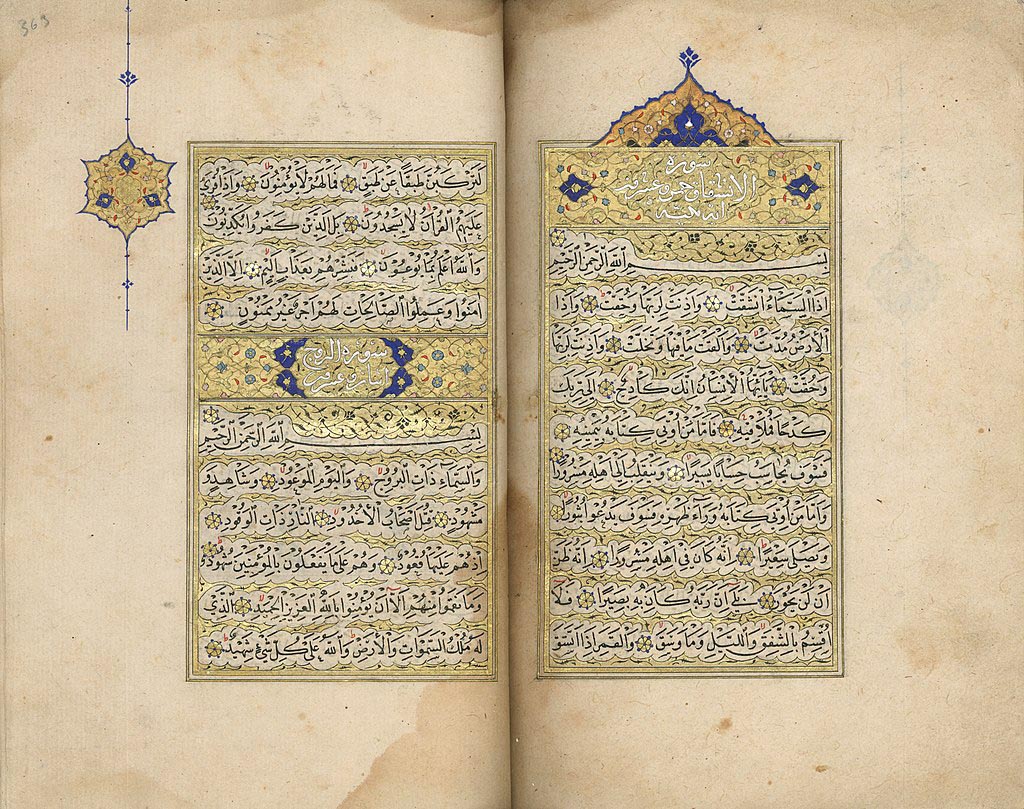 سورة
الانشقاق خمس وعشرون
اية مكية
بِسْمِ اللهِ الرَّحْمٰنِ الرَّحِيمِ
اِذَا السَّمَاءُ انْشَقَّتْ وَاَذِنَتْ لِرَبِّهَا وَحُقَّتْ وَاِذَا
الْاَرْضُ مُدَّتْ وَاَلْقَتْ مَا فِيهَا وَتَخَلَّتْ وَاَذِنَتْ لِرَبِّهَا
وَحُقَّتْ يَا اَيُّهَا الْاِنْسَانُ اِنَّكَ كَادِحٌ اِلٰى رَبِّكَ
كَدْحًا فَمُلَاقِيهِ فَاَمَّا مَنْ اُوتِيَ كِتَابَهُ بِيَمِينِهِ
فَسَوْفَ يُحَاسَبُ حِسَابًا يَسِيرًا وَيَنْقَلِبُ اِلٰى اَهْلِهِ مَسْرُورًا
وَاَمَّا مَنْ اُوتِيَ كِتَابَهُ وَرَاءَ ظَهْرِهِ فَسَوْفَ يَدْعُوا ثُبُورًا
وَيَصْلٰى سَعِيرًا اِنَّهُ كَانَ فِي اَهْلِهِ مَسْرُورًا اِنَّهُ ظَنَّ
اَنْ لَنْ يَحُورَ بَلٰى اِنَّ رَبَّهُ كَانَ بِهِ بَصِيرًا فَلَا
اُقْسِمُ بِالشَّفَقِ وَاللَّيْلِ وَمَا وَسَقَ وَالْقَمَرِ اِذَا اتَّسَقَ
لَتَرْكَبُنَّ طَبَقًا عَنْ طَبَقٍ فَمَا لَهُمْ لَا يُؤْمِنُونَ وَاِذَا قُرِئَ
عَلَيْهِمُ الْقُرْاٰنُ لَا يَسْجُدُونَ بَلِ الَّذِينَ كَفَرُوا يُكَذِّبُونَ
وَاللهُ اَعْلَمُ بِمَا يُوعُونَ فَبَشِّرْهُمْ بِعَذَابٍ اَلِيمٍ اِلَّا الَّذِينَ
اٰمَنُوا وَعَمِلُوا الصَّالِحَاتِ لَهُمْ اَجْرٌ غَيْرُ مَمْنُونٍ
سورة البروج
بِسْمِ اللهِ الرَّحْمٰنِ الرَّحِيمِ
وَالسَّمَاءِ ذَاتِ الْبُرُوجِ وَالْيَوْمِ الْمَوْعُودِ وَشَاهِدٍ وَ
مَشْهُودٍ قُتِلَ اَصْحَابُ الْاُخْدُودِ النَّارِ ذَاتِ الْوَقُودِ
اِذْ هُمْ عَلَيْهَا قُعُودٌ وَهُمْ عَلٰى مَا يَفْعَلُونَ بِالْمُؤْمِنِينَ شُهُودٌ
وَمَا نَقَمُوا مِنْهُمْ اِلَّا اَنْ يُؤْمِنُوا بِاللهِ الْعَزِيزِ الْحَمِيدِ الَّذِي
لَهُ مُلْكُ السَّمٰوَاتِ وَالْاَرْضِ وَاللهُ عَلٰى كُلِّ شَيْءٍ شَهِيدٌ